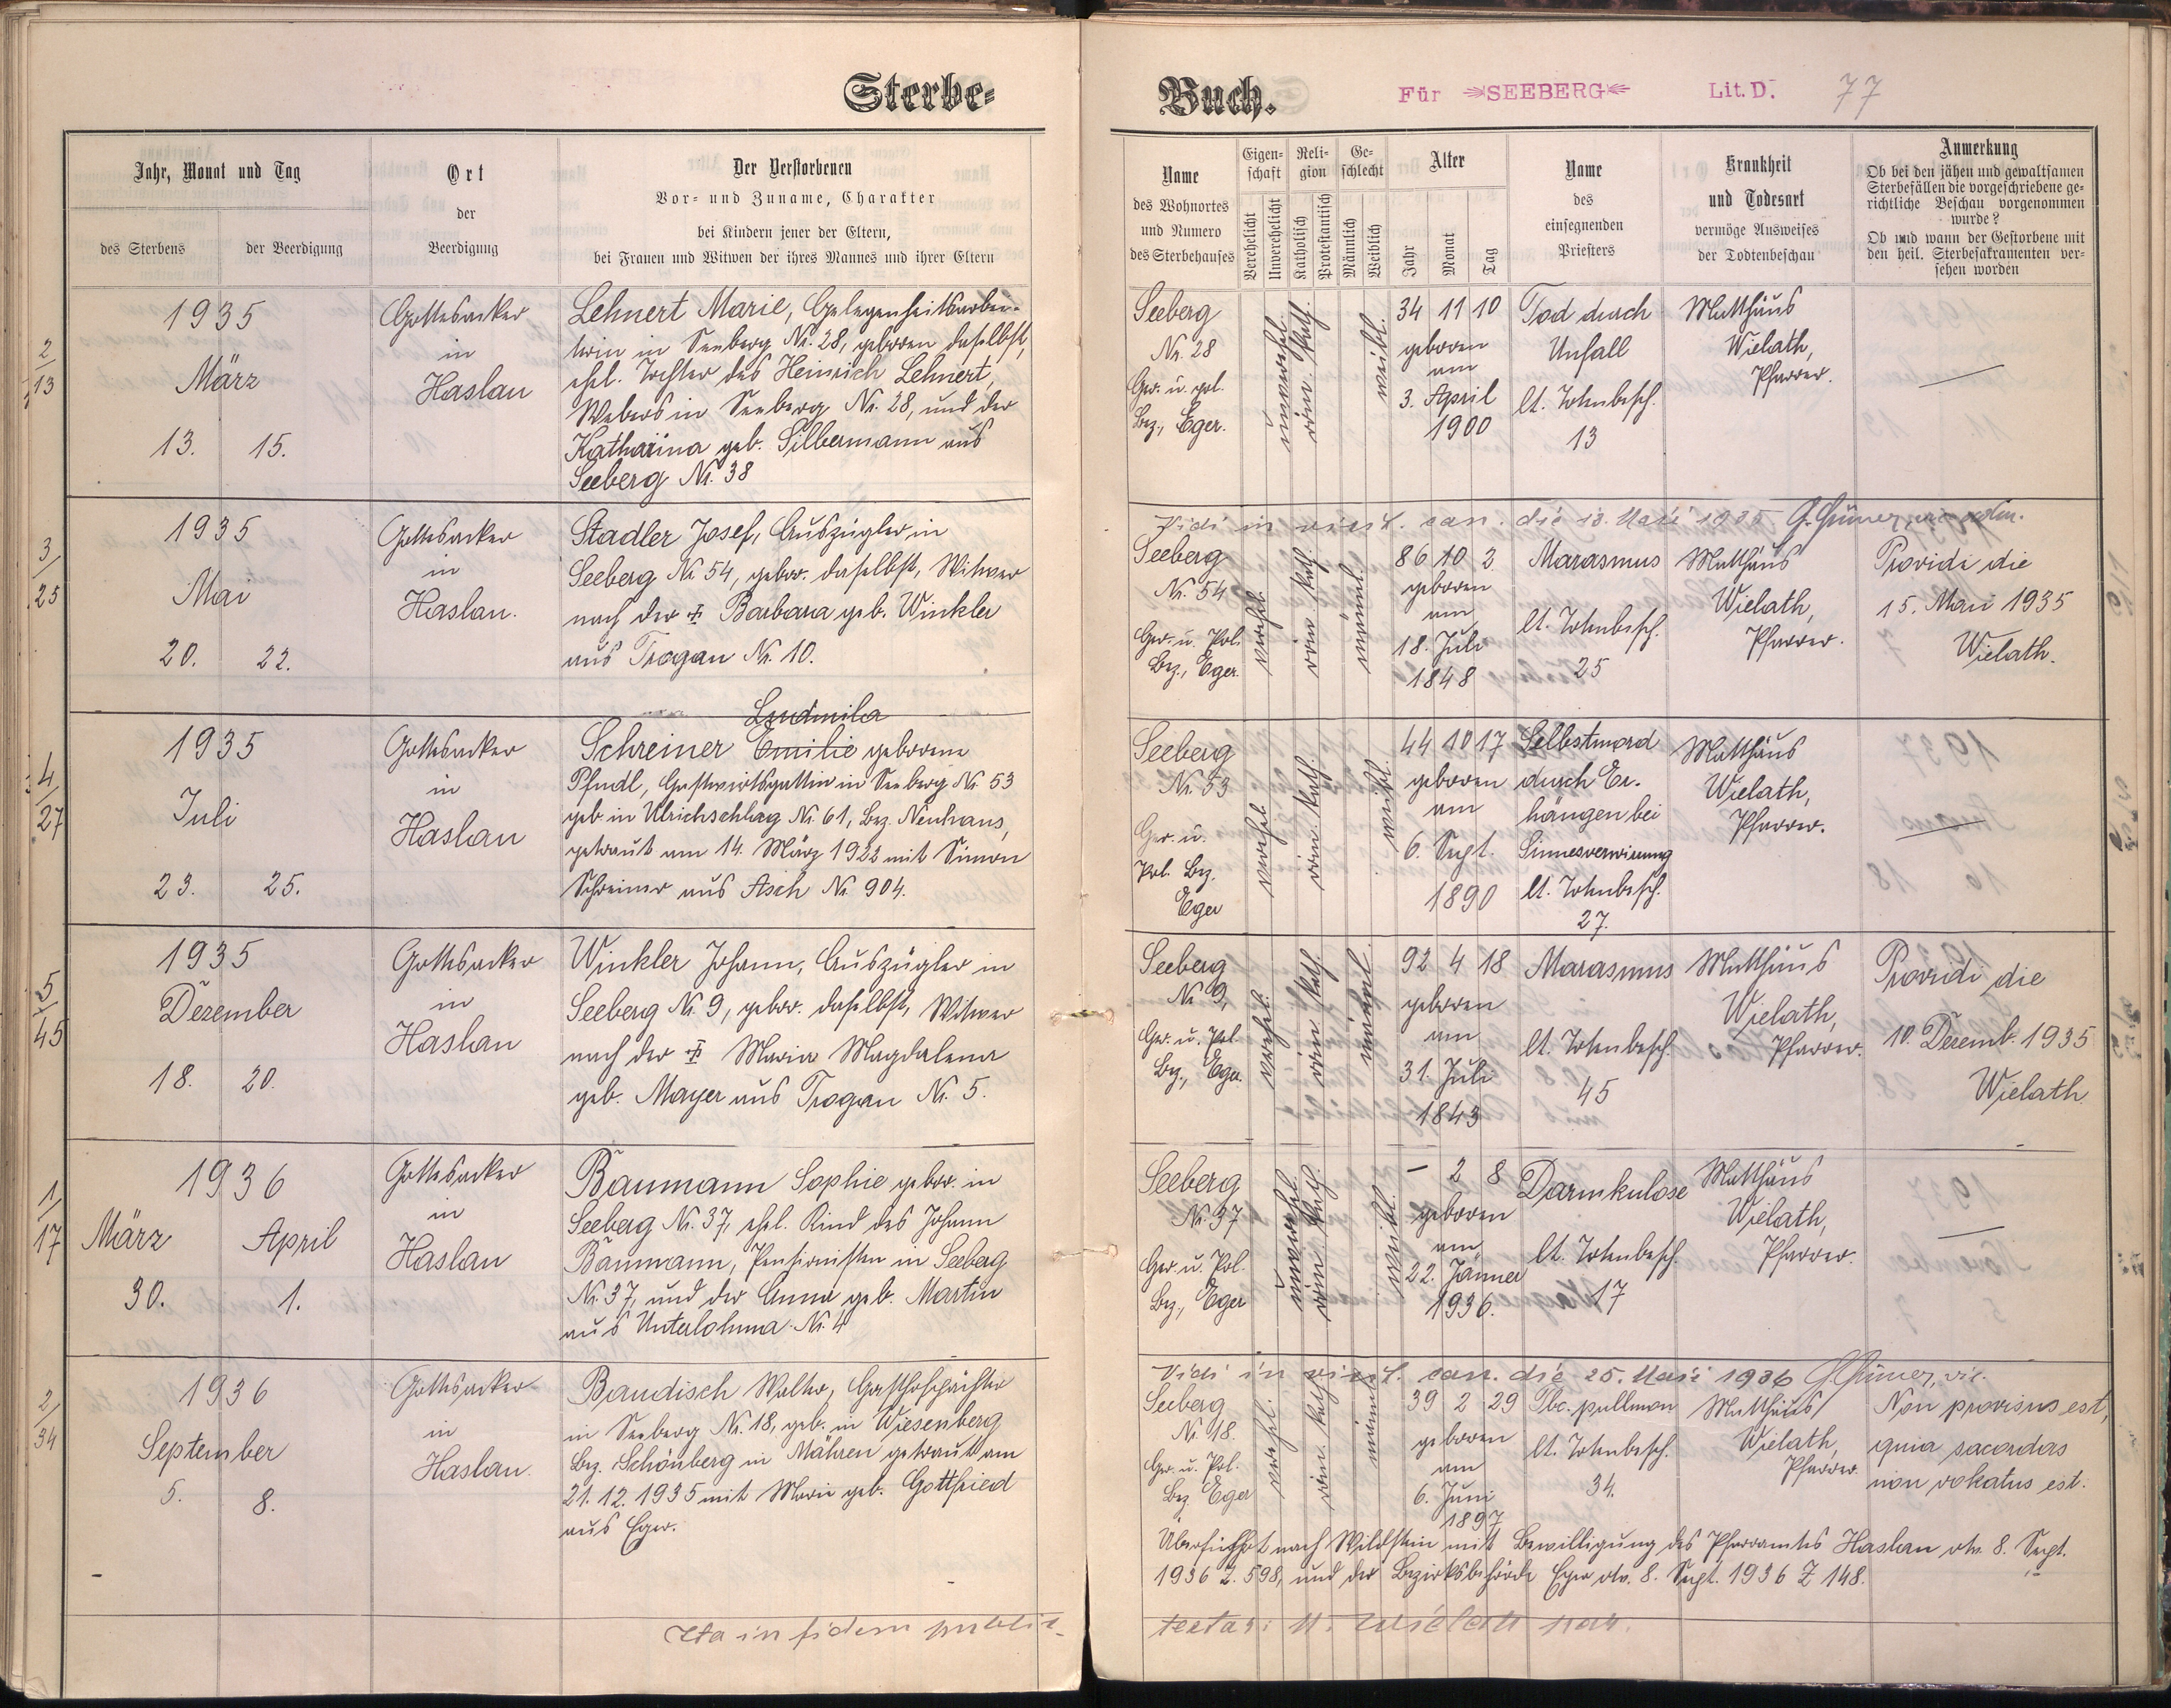 Sterbe-
Buch.
Für SEEBERG Lit. D. 77
Jahr, Monat und Tag
des Sterbens
der Beerdigung
Ort
der
Beerdigung
Der Verstorbenen
Vor- und Zuname, Charakter
bei Kindern jener der Eltern,
bei Frauen und Witwen der ihres Mannes und ihrer Eltern
Name
des Wohnortes
und Numero
des Sterbehauses
Eigen-
schaft
Verehelicht
Unverehelicht
Reli-
gion
Katholisch
Protestantisch
Ge-
schlecht
Männlich
Weiblich
Alter
Jahr
Monat
Tag
Name
des
einsegnenden
Priesters
Krankheit
und Todesart
vermöge Ausweises
der Todtenbeschau
Anmerkung
Ob bei den jähen und gewaltsamen
Sterbefällen die vorgeschriebene ge-
richtliche Beschau vorgenommen
wurde?
Ob und wann der Gestorbene mit
den heil. Sterbesakramenten ver-
sehen worden
2/13
1935
März
13. 15.
Gottesacker
in
Haslau
Lehnert Marie, Gelegenheitsarbei-
terin in Seeberg Nr. 28, geboren daselbst,
ehel. Tochter des Heinrich Lehnert,
Webers in Seeberg Nr. 28, und der
Katharina geb. Silbermann aus
Seeberg Nr. 38
Seeberg
Nr. 28
Ger. u. pol.
Bez., Eger.
unverehel.
röm. kath.
weibl.
34 11 10
geboren
am
3. April
1900
Tod durch
Unfall
lt. Totenbesch.
13
Matthäus
Wielath,
Pfarrer.
—
3/25
1935
Mai
20. 22.
Gottesacker
in
Haslau.
Stadler Josef, Auszügler in
Seeberg Nr. 54, gebor. daselbst, Witwer
nach der † Barbara geb. Winkler
aus Trogau Nr. 10.
Vidi in visit. can. die 13. Maii 1935
Seeberg
Nr. 54
Ger. u. Pol.
Bez., Eger.
verehel.
röm. kath.
männl.
86 10 2
geboren
am
18. Juli
1848
Marasmus
lt. Totenbesch.
25
Matthäus
Wielath,
Pfarrer.
Providi die
15. Maii 1935
Wielath.
4/27
1935
Juli
23. 25.
Gottesacker
in
Haslau
Ludmila
Schreiner Emilie geborene
Pfudl, Gastwirtsgattin in Seeberg Nr. 53
geb. in Ulrichschlag Nr. 61, Bez. Neuhaus,
getraut am 14. März 1922 mit Simon
Schreiner aus Asch Nr. 904.
Seeberg
Nr. 53
Ger. u.
Pol. Bez.
Eger
verehel.
röm. kath.
weibl.
44 10 17
geboren
am
6. Sept.
1890
Selbstmord
durch Er-
hängen bei
Sinnesverwirrung
lt. Totenbesch.
27.
Matthäus
Wielath,
Pfarrer.
—
5/45
1935
Dezember
18. 20.
Gottesacker
in
Haslau
Winkler Johann, Auszügler in
Seeberg Nr. 9, gebor. daselbst, Witwer
nach der † Maria Magdalena
geb. Mayer aus Trogau Nr. 5.
Seeberg
Nr. 9,
Ger. u. Pol.
Bez., Eger.
verehel.
röm. kath.
männl.
92 4 18
geboren
am
31. Juli
1843
Marasmus
lt. Totenbesch.
45
Matthäus
Wielath,
Pfarrer.
Providi die
10. Dezemb. 1935
Wielath
1/17
1936
März April
30. 1.
Gottesacker
in
Haslau
Baumann Sophie gebor. in
Seeberg Nr. 37, ehel. Kind des Johann
Baumann, Pensionisten in Seeberg
Nr. 37, und der Anna geb. Martin
aus Unterlohma Nr. 4
Seeberg
Nr. 37
Ger. u. Pol.
Bez., Eger
unverehel.
röm. kath.
weibl.
— 2 8
geboren
am
22. Jänner
1936.
Darmkulose
lt. Totenbesch.
17
Matthäus
Wielath,
Pfarrer.
—
2/34
1936
September
5. 8.
Gottesacker
in
Haslau.
Baudisch Walter, Gasthofpächter
in Seeberg Nr. 18, geb. in Wiesenberg
Bez. Schönberg in Mähren getraut am
21. 12. 1935 mit Marie geb. Gottfried
aus Eger.
Vidi in visit. can. die 25. Maii 1936
Seeberg
Nr. 18.
Ger. u. Pol.
Bez. Eger
verehel.
röm. kath.
männl.
39 2 29
geboren
am
6. Juni
1897
Tbc. pullmon
lt. Totenbesch.
34.
Matthäus
Wielath,
Pfarrer.
Non provisus est,
quia sacerdos
non vokatus est.
Überführt nach Wildstein mit Bewilligung des Pfarramtes Haslau vtr. 8. Sept.
1936 Z. 598, und der Bezirksbehörde Eger vtr. 8. Sept. 1936 Z 148.
Ita in fidem public.
testor: M. Wielath